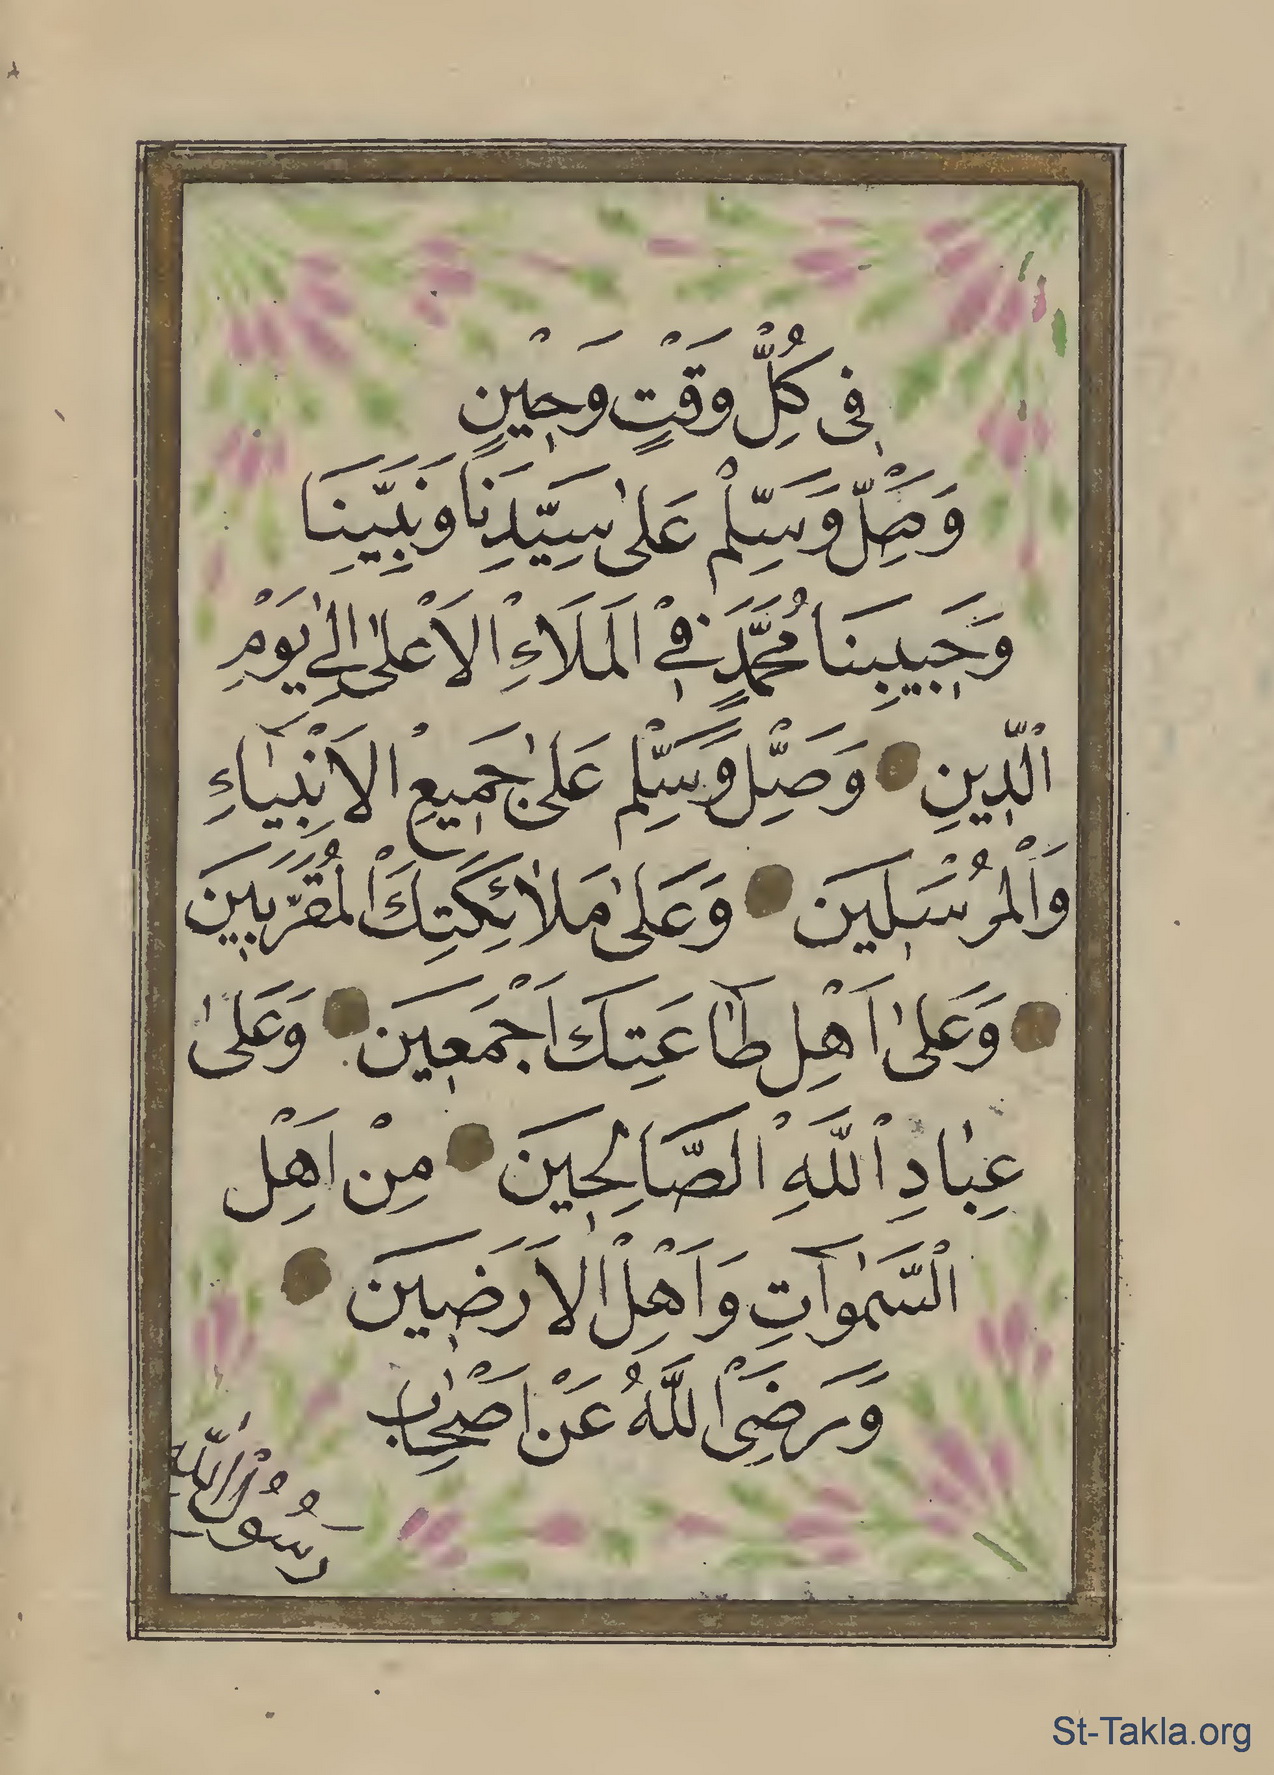 فِى كُلِّ وَقْتٍ وَحِيْنٍ
وَصَلِّ وَسَلِّمْ عَلٰى سَيِّدِنَا وَنَبِيِّنَا
وَحَبِيبِنَا مُحَمَّدٍ فِى الْمَلَاءِ الْاَعْلٰى اِلٰى يَوْمِ
الدِّينِ وَصَلِّ وَسَلِّمْ عَلٰى جَمِيعِ الْاَنْبِيَاءِ
وَالْمُرْسَلِينَ وَعَلٰى مَلٰائِكَتِكَ الْمُقَرَّبِينَ
وَعَلٰى اَهْلِ طَاعَتِكَ اَجْمَعِينَ وَعَلٰى
عِبَادِ اللَّهِ الصَّالِحِينَ مِنْ اَهْلِ
السَّمٰوَاتِ وَاَهْلِ الْاَرَضِينَ
وَرَضِىَ اللَّهُ عَنْ اَصْحَابِ
رَسُولِ اللَّهِ
St-Takla.org